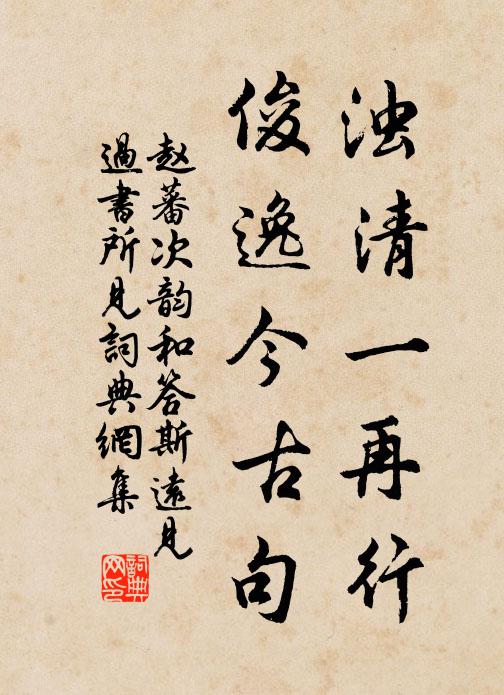 浊清一再行
俊逸今古句
赵蕃次韵和答斯遠見
過書所見詞典網集
詞典网印